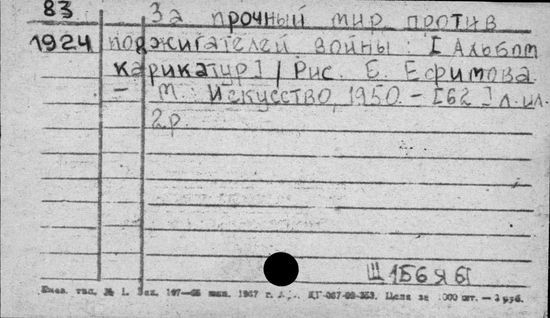 83 За прочный мир, против
1924 поджигателей войны: [Альбом
карикатур] / Рис. Е. Ефимова.
– М.: Искусство, 1950. – [62] л. ил.
2р.
Щ 156 я 61
тип. № 1. Зак. 197—65 1967 г. Цена за 1000 шт. — 3 руб.